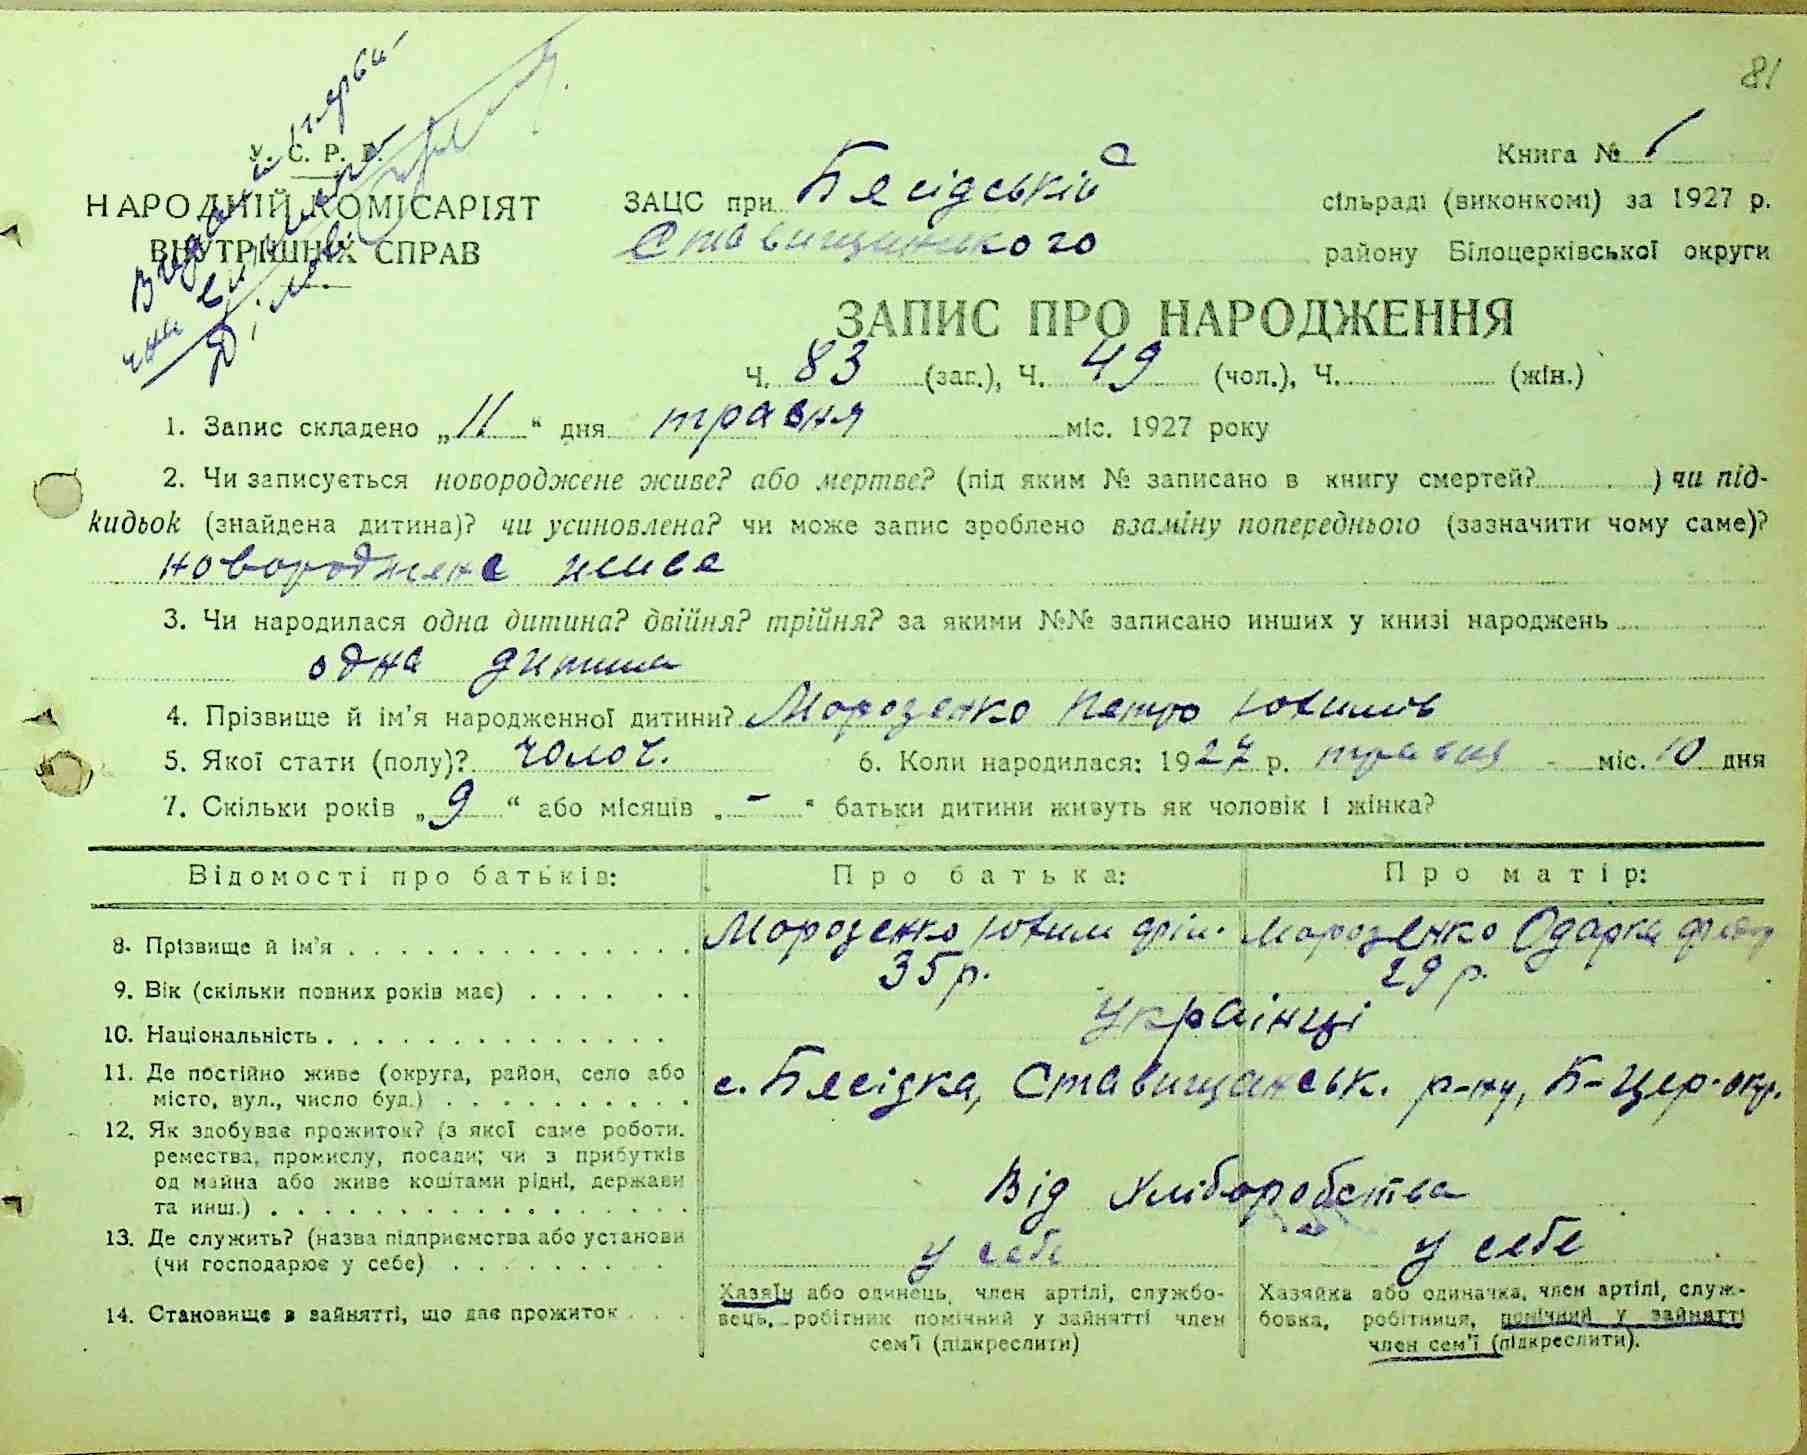 81
У. С. Р. Р.
НАРОДНІЙ КОМІСАРІЯТ
ВНУТРІШНІХ СПРАВ
Книга № 1
ЗАЦС при Бесідській сільраді (виконкомі) за 1927 р.
Ставищанського району Білоцерківської округи
ЗАПИС ПРО НАРОДЖЕННЯ
Ч. 83 (заг.), Ч. 49 (чол.), Ч. (жін.)
1. Запис складено „11“ дня травня міс. 1927 року
2. Чи записується новороджене живе? або мертве? (під яким № записано в книгу смертей? ) чи під-
кидьок (знайдена дитина)? чи усиновлена? чи може запис зроблено взаміну попереднього (зазначити чому саме)?
новороджене живе
3. Чи народилася одна дитина? двійня? трійня? за якими №№ записано инших у книзі народжень
одна дитина
4. Прізвище й ім'я народженної дитини? Морозенко Петро Юхимів
5. Якої стати (полу)? чолоч. 6. Коли народилася: 1927 р. травня - міс. 10 дня
7. Скільки років „9“ або місяців „-“ батьки дитини живуть як чоловік і жінка?
Відомості про батьків: Про батька: Про матір:
8. Прізвище й ім'я Морозенко Юхим Морозенко Одарка
9. Вік (скільки повних років має) 35 р. 29 р.
10. Національність Українці
11. Де постійно живе (округа, район, село або
місто, вул., число буд.) с. Бесідка, Ставищанськ. р-ну, Б-Цер. окр.
12. Як здобуває прожиток? (з якої саме роботи,
ремества, промислу, посади; чи з прибутків
од майна або живе коштами рідні, держави
та инш.) Від хліборобства
13. Де служить? (назва підприємства або установи
(чи господарює у себе) у себе у себе
14. Становище в зайнятті, що дає прожиток
Хазяїн або одинець, член артілі, службо-
вець, робітник помічний у зайнятті член
сем'ї (підкреслити)
Хазяйка або одиначка, член артілі, служ-
бовка, робітниця, помічний у зайнятті
член сем'ї (підкреслити).